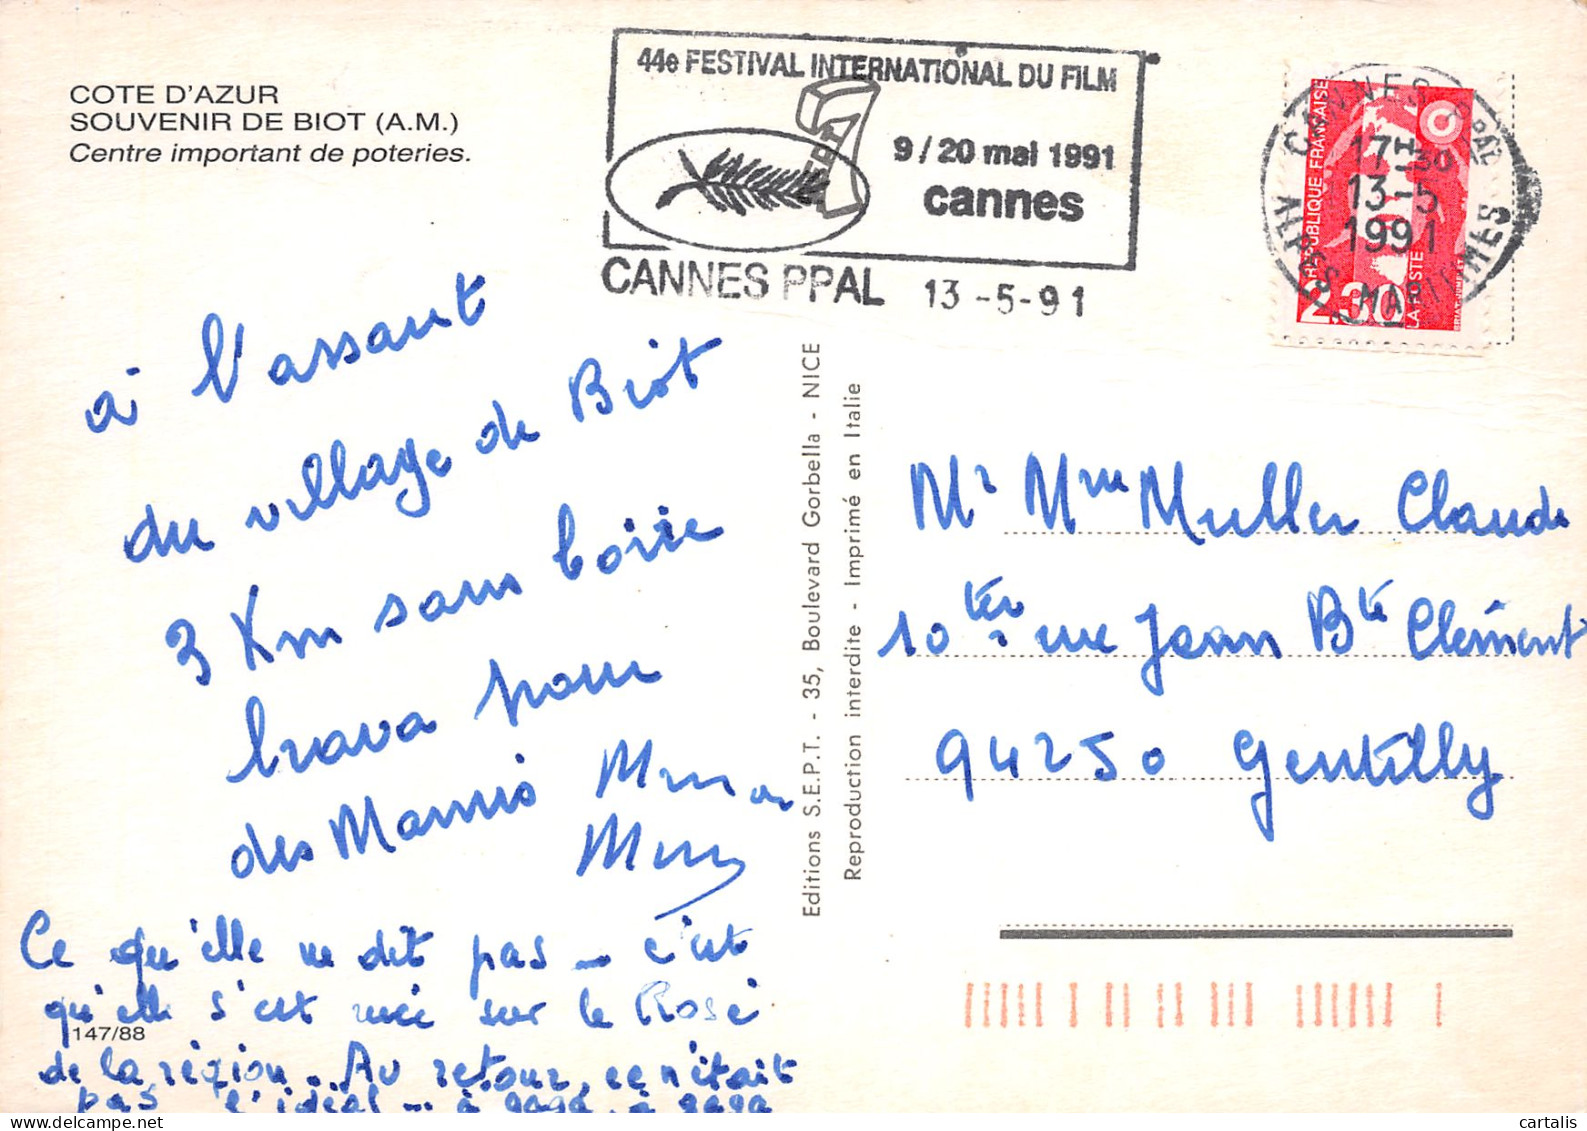 COTE D'AZUR
SOUVENIR DE BIOT (A.M.)
Centre important de poteries.
44e FESTIVAL INTERNATIONAL DU FILM
9/20 mai 1991
cannes
CANNES PPAL 13-5-91
CANNES PPAL
17H30
13-5
1991
ALPES MARITIMES
REPUBLIQUE FRANÇAISE
LA POSTE
2,30
à l'assaut
du village de Biot
3 Km sans boire
bravo pour
des Mamies
Ce qu'elle ne dit pas - c'est
qu'elle s'est ruée sur le Rosé
de la région. Au retour, ce n'était
pas l'idéal ... à gaga, à gaga
147/88
Editions S.E.P.T. - 35, Boulevard Gorbella - NICE
Reproduction interdite - Imprimé en Italie
Mr Mme Muller Claude
10 ter rue Jean Bte Clément
94250 Gentilly
cartalis